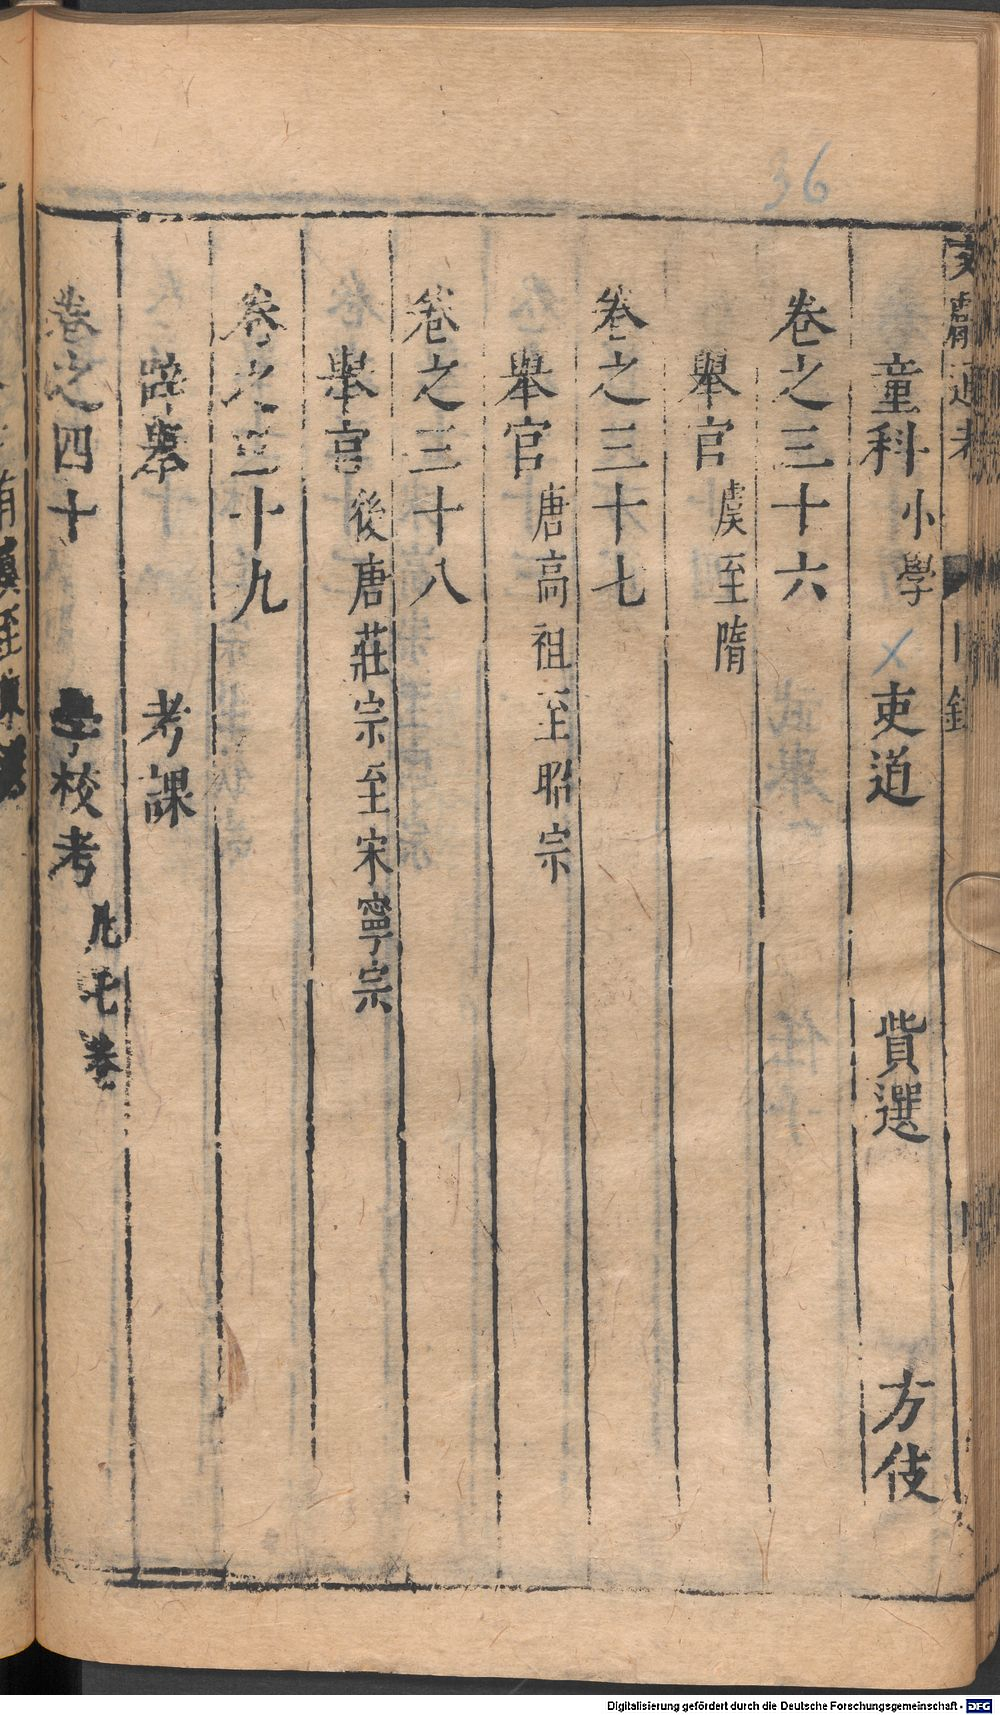 36
文獻通考 目錄
童科 小學 吏道 貲選 方伎
卷之三十六
舉官 虞至隋
卷之三十七
舉官 唐高祖至昭宗
卷之三十八
舉官 後唐莊宗至宋寧宗
卷之三十九
辟舉 考課
卷之四十 學校考 凡七卷
Digitalisierung gefördert durch die Deutsche Forschungsgemeinschaft - DFG